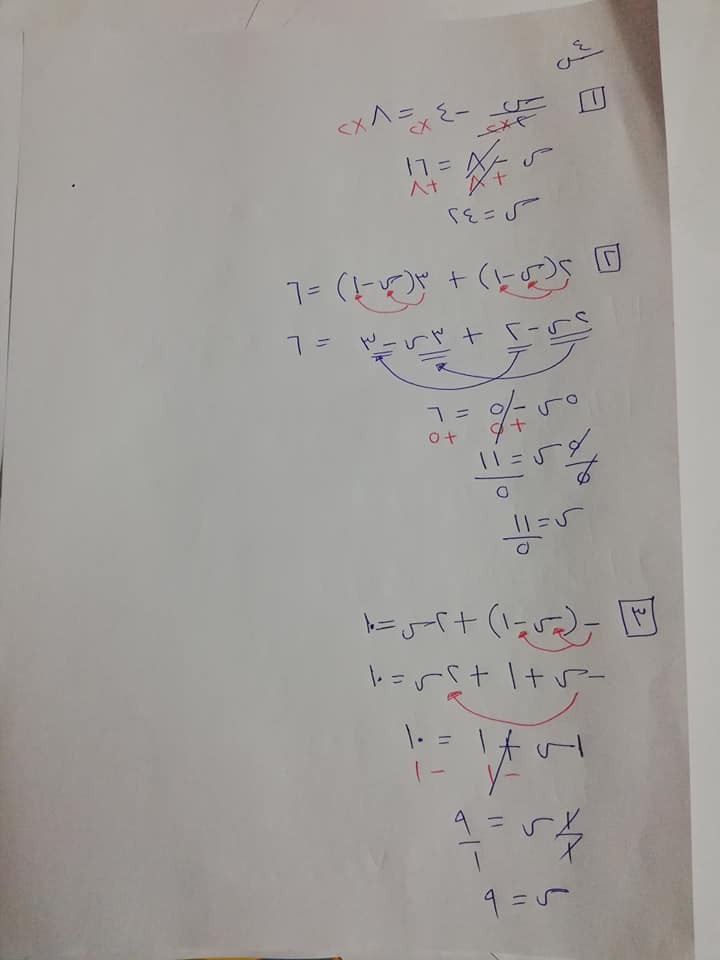 س٤
١ س/٢ ×٢ − ٤ ×٢ = ٨ ×٢
س − ٨ = ١٦
+٨ +٨
س = ٢٤
٢ ٢(س−١) + ٣(س−١) = ٦
٢س−٢ + ٣س−٣ = ٦
٥س − ٥ = ٦
+٥ +٥
٥س/٥ = ١١/٥
س = ١١/٥
٣ −(س−١) + ٢س = ١٠
−س+١ + ٢س = ١٠
١س + ١ = ١٠
−١ −١
١س/١ = ٩/١
س = ٩